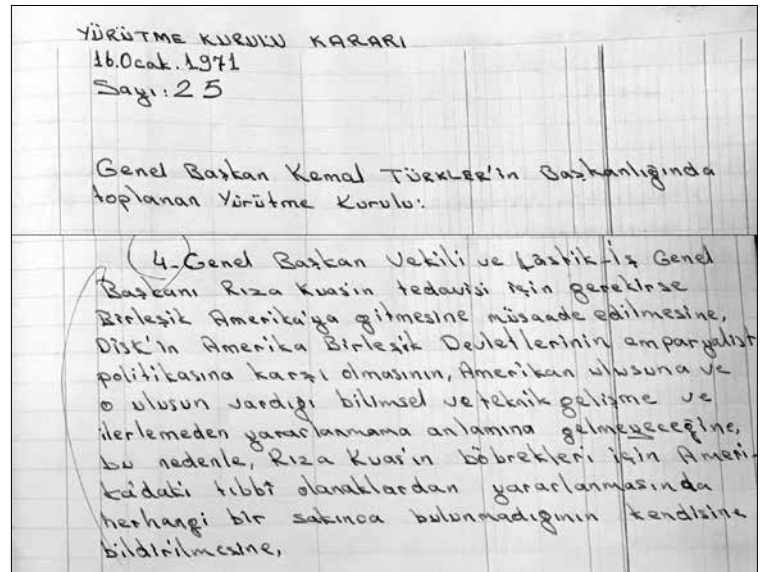 YÜRÜTME KURULU KARARI
16.Ocak.1971
Sayı:25
Genel Başkan Kemal TÜRKLER'in Başkanlığında
toplanan Yürütme Kurulu:
4-Genel Başkan Vekili ve Lâstik-İş Genel
Başkanı Rıza Kuas'ın tedavisi için gerekirse
Birleşik Amerika'ya gitmesine müsaade edilmesine,
Disk'in Amerika Birleşik Devletlerinin emparyalist
politikasına karşı olmasının, Amerikan ulusuna ve
o ulusun vardığı bilimsel ve teknik gelişme ve
ilerlemeden yararlanmama anlamına gelmeyeceğine,
bu nedenle, Rıza Kuas'ın böbrekleri için Ameri-
ka'daki tıbbî olanaklardan yararlanmasında
herhangi bir sakınca bulunmadığının kendisine
bildirilmesine,